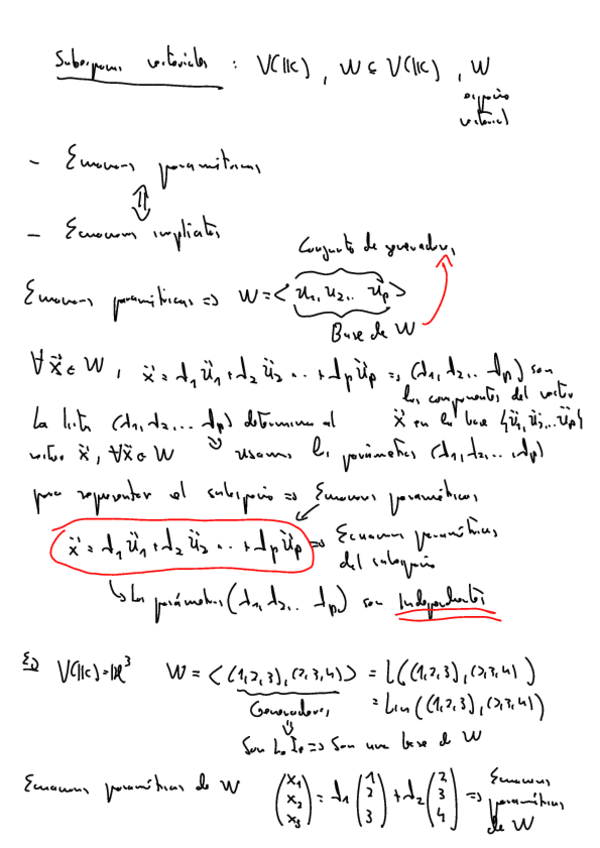 Subespacios vectoriales : V(K) , W ⊆ V(K) , W
espacio
vectorial
- Ecuaciones paramétricas
⇕
- Ecuaciones implícitas
Conjunto de generadores
Ecuaciones paramétricas => W = < u₁, u₂, .. u⃗p >
Base de W
∀ x⃗ ∈ W , x⃗ = λ₁ u⃗₁ + λ₂ u⃗₂ .. + λp u⃗p => (λ₁, λ₂.. λp) son
las componentes del vector
La lista (λ₁, λ₂... λp) determina al x⃗ en la base {u⃗₁, u⃗₂... u⃗p}
vector x⃗, ∀x⃗ ∈ W => usamos los parámetros (λ₁, λ₂... λp)
para representar el subespacio => Ecuaciones paramétricas
x⃗ = λ₁ u⃗₁ + λ₂ u⃗₂ .. + λp u⃗p => Ecuaciones paramétricas
del subespacio
↳ Los parámetros (λ₁, λ₂.. λp) son Independientes
Ej V(K) = ℝ³ W = < (1,2,3), (2,3,4) > = L((1,2,3), (2,3,4))
Generadores = Lin((1,2,3), (2,3,4))
⇓
Son L.I. => Son una base de W
Ecuaciones paramétricas de W (x₁ x₂ x₃) = λ₁ (1 2 3) + λ₂ (2 3 4) => Ecuaciones
paramétricas
de W